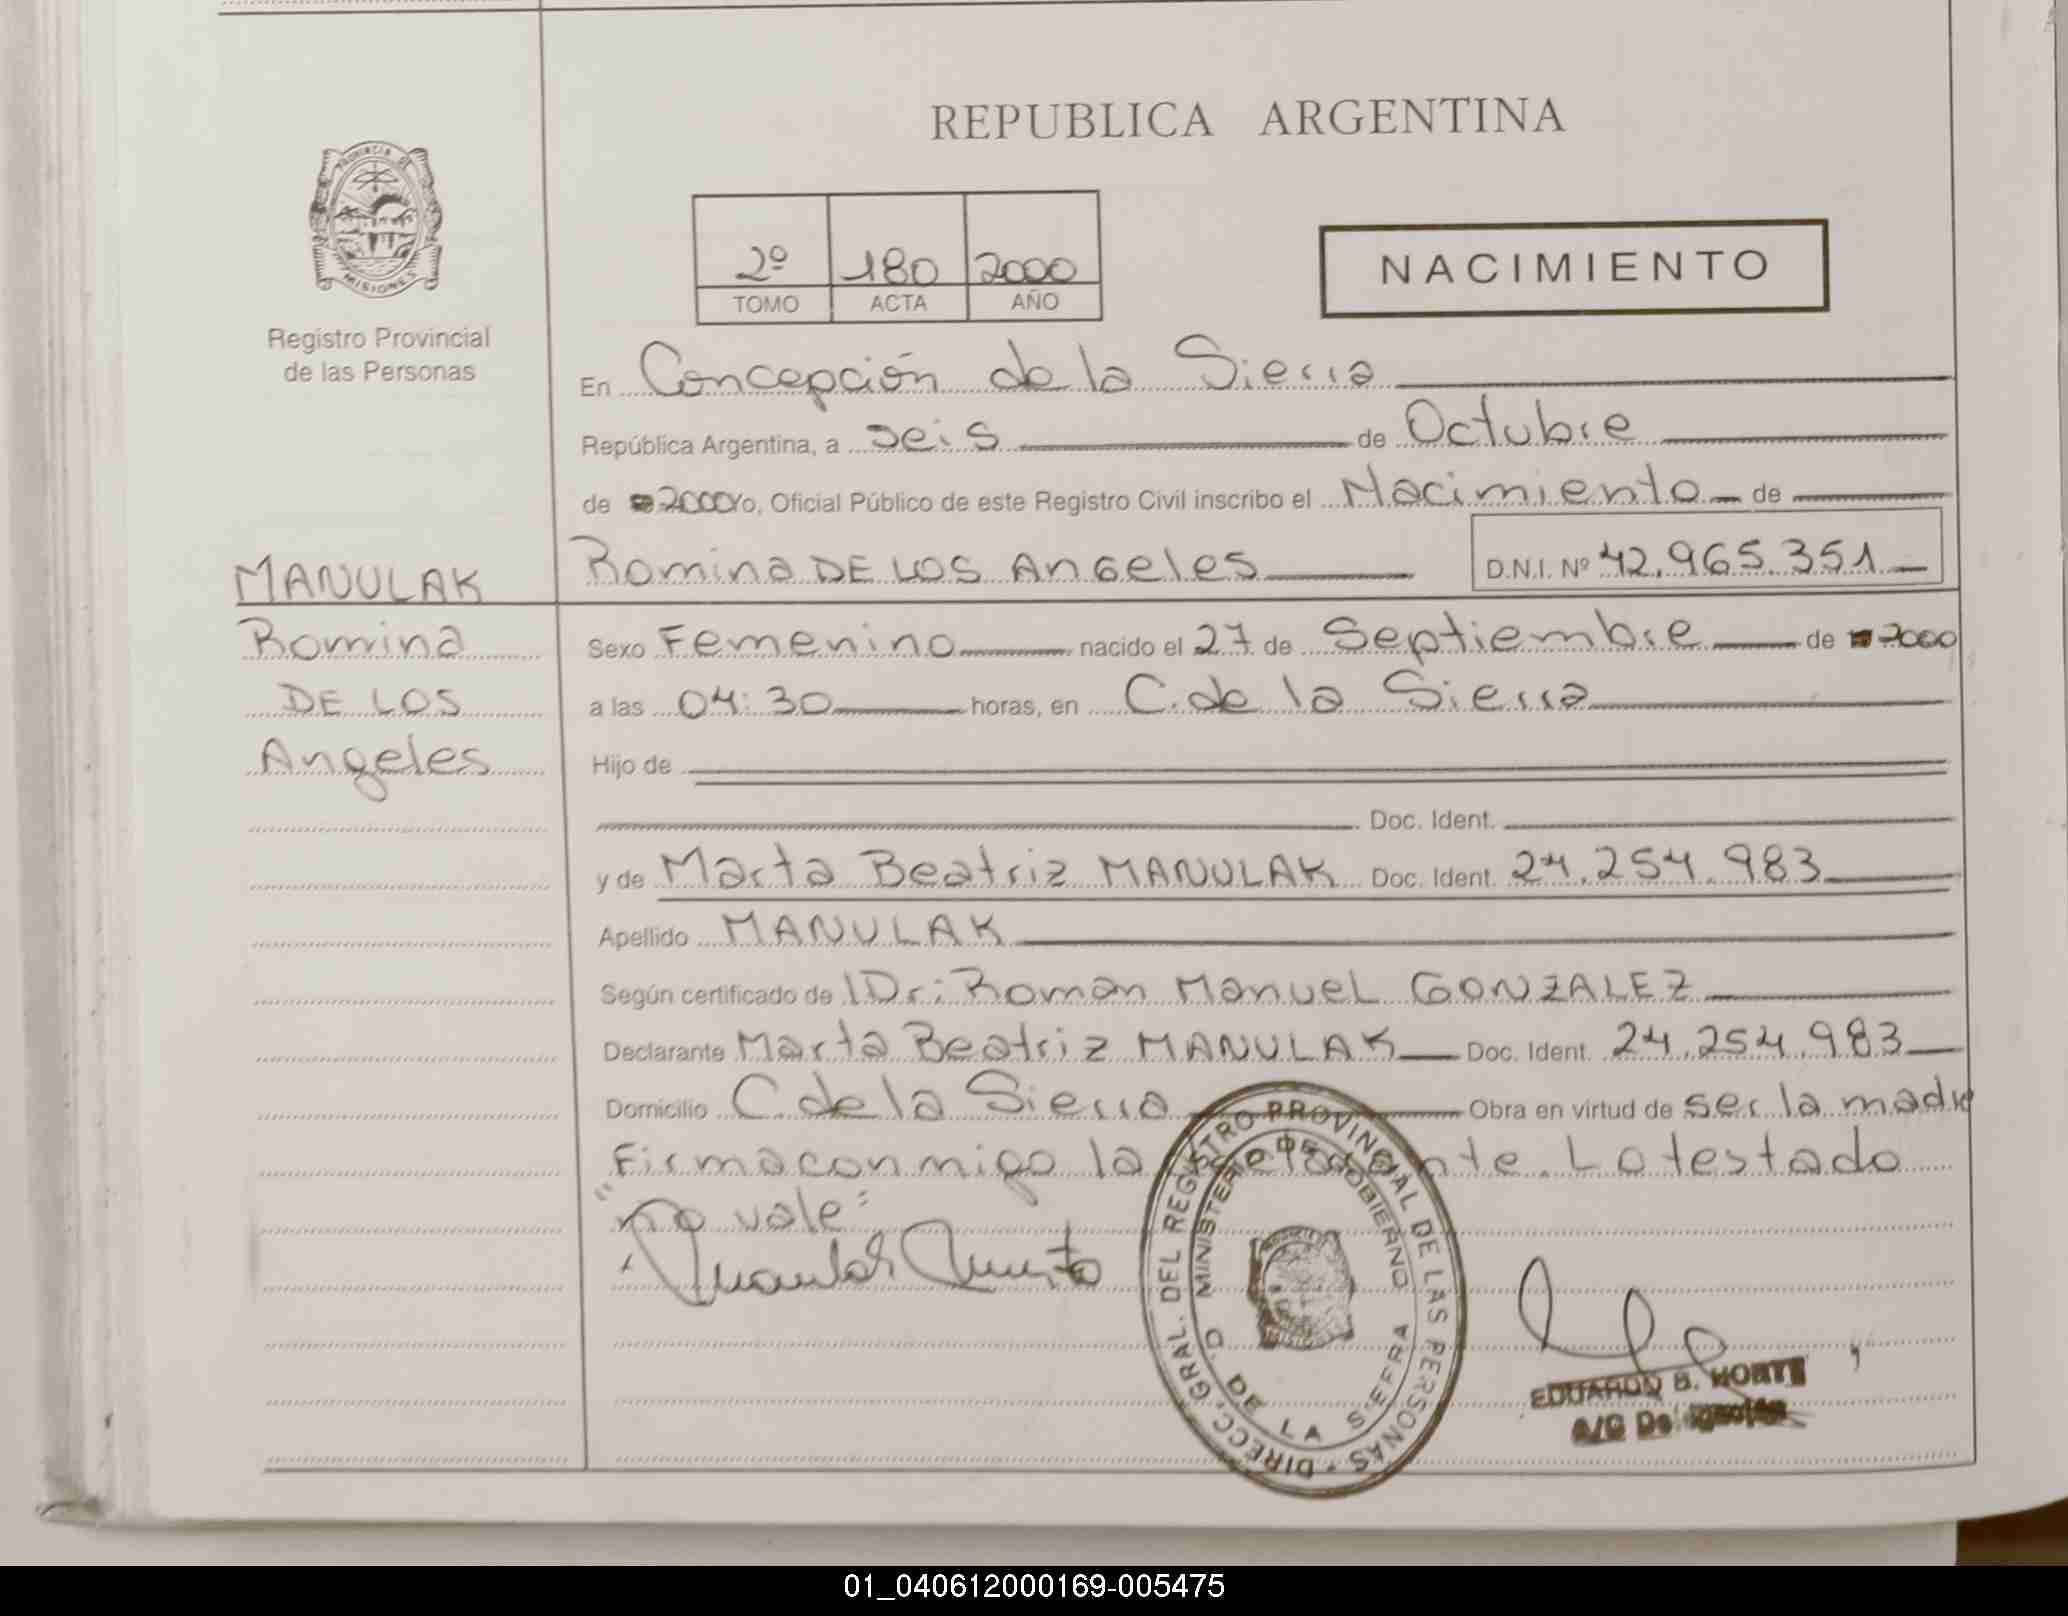 REPUBLICA ARGENTINA
PROVINCIA DE
MISIONES
Registro Provincial
de las Personas
2º 180 2000
TOMO ACTA AÑO
NACIMIENTO
En Concepción de la Sierra
República Argentina, a seis de Octubre
de 2000 Yo, Oficial Público de este Registro Civil inscribo el Nacimiento de
MANULAK
Romina DE LOS Angeles
D.N.I. Nº 42.965.351
Romina
DE LOS
Angeles
Sexo Femenino nacido el 27 de Septiembre de 2000
a las 04:30 horas, en C. de la Sierra
Hijo de
Doc. Ident.
y de Marta Beatriz MANULAK Doc. Ident. 24.254.983
Apellido MANULAK
Según certificado de l Dr: Roman Manuel GONZALEZ
Declarante Marta Beatriz MANULAK Doc. Ident. 24.254.983
Domicilio C. de la Sierra Obra en virtud de ser la madre
Firma conmigo la declarante. Lo testado
"no vale"
Manulak Marta
DIRECC. GRAL. DEL REGISTRO PROVINCIAL DE LAS PERSONAS
MINISTERIO DE GOBIERNO
C. DE LA SIERRA
EDUARDO B.
A/C Delegación
01_040612000169-005475